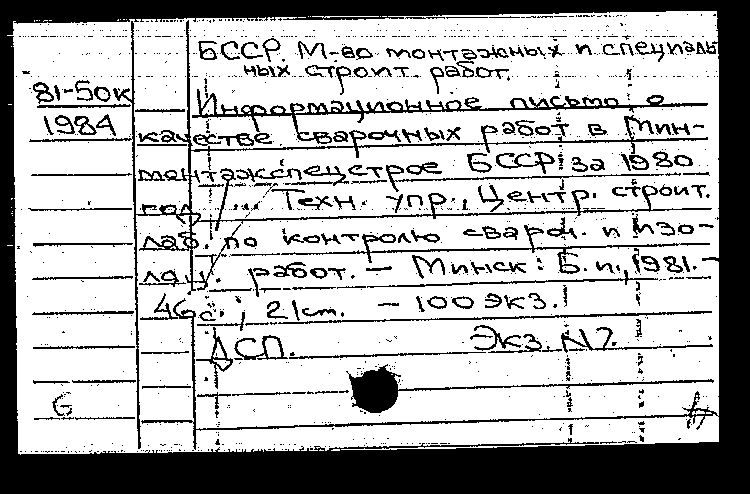 БССР. М-во монтажных и специаль
ных строит. работ.
81-50к
1984
Информационное письмо о
качестве сварочных работ в Мин-
монтажспецстрое БССР за 1980
год / ... Техн. упр., Центр. строит.
лаб. по контролю свароч. и изо-
ляц. работ. — Минск: Б.и., 1981. —
46с.; 21см. — 100 экз.
ДСП. Экз. N7.
6